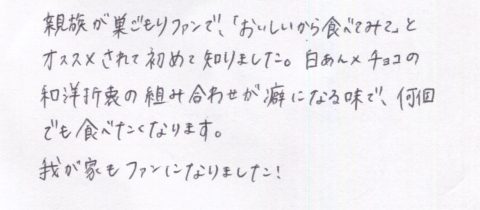 親族が巣ごもりファンで、「おいしいから食べてみて」と
オススメされて初めて知りました。白あん×チョコの
和洋折衷の組み合わせが癖になる味で、何個
でも食べたくなります。
我が家もファンになりました!